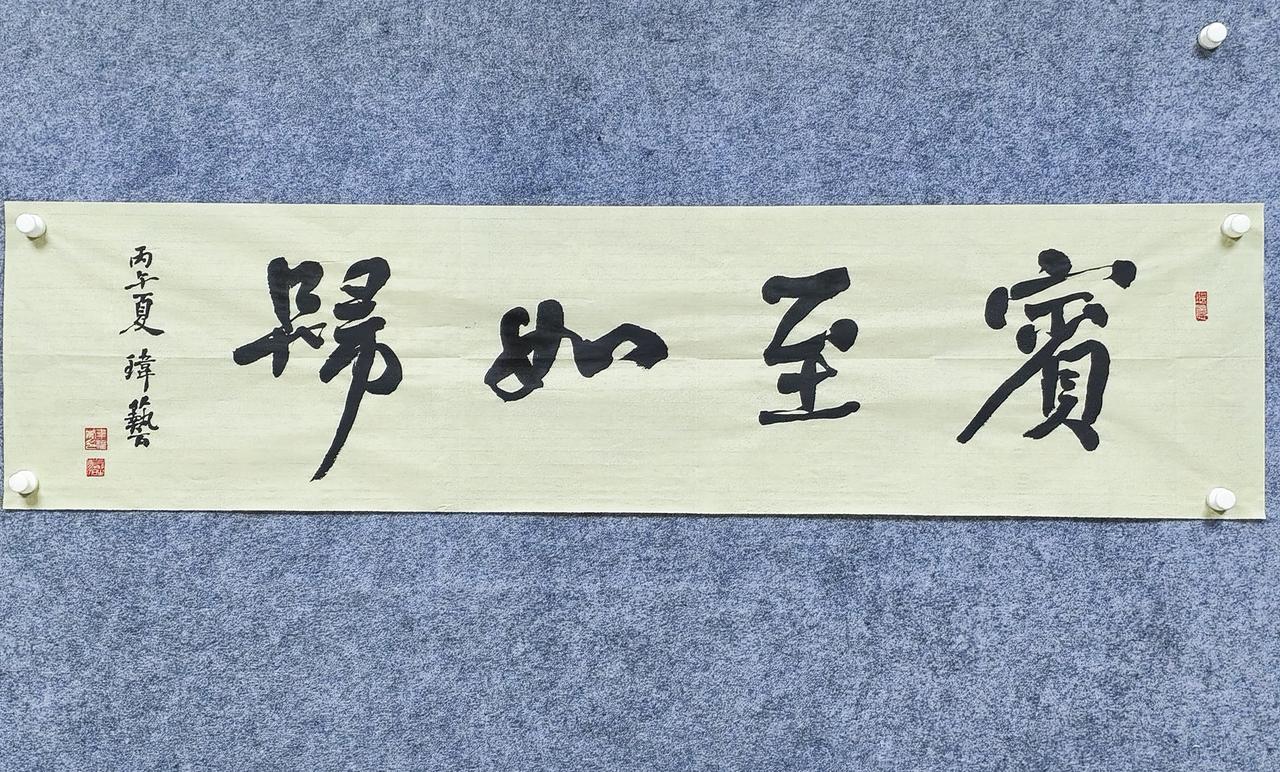 賓至如歸
丙午夏 瑋藝